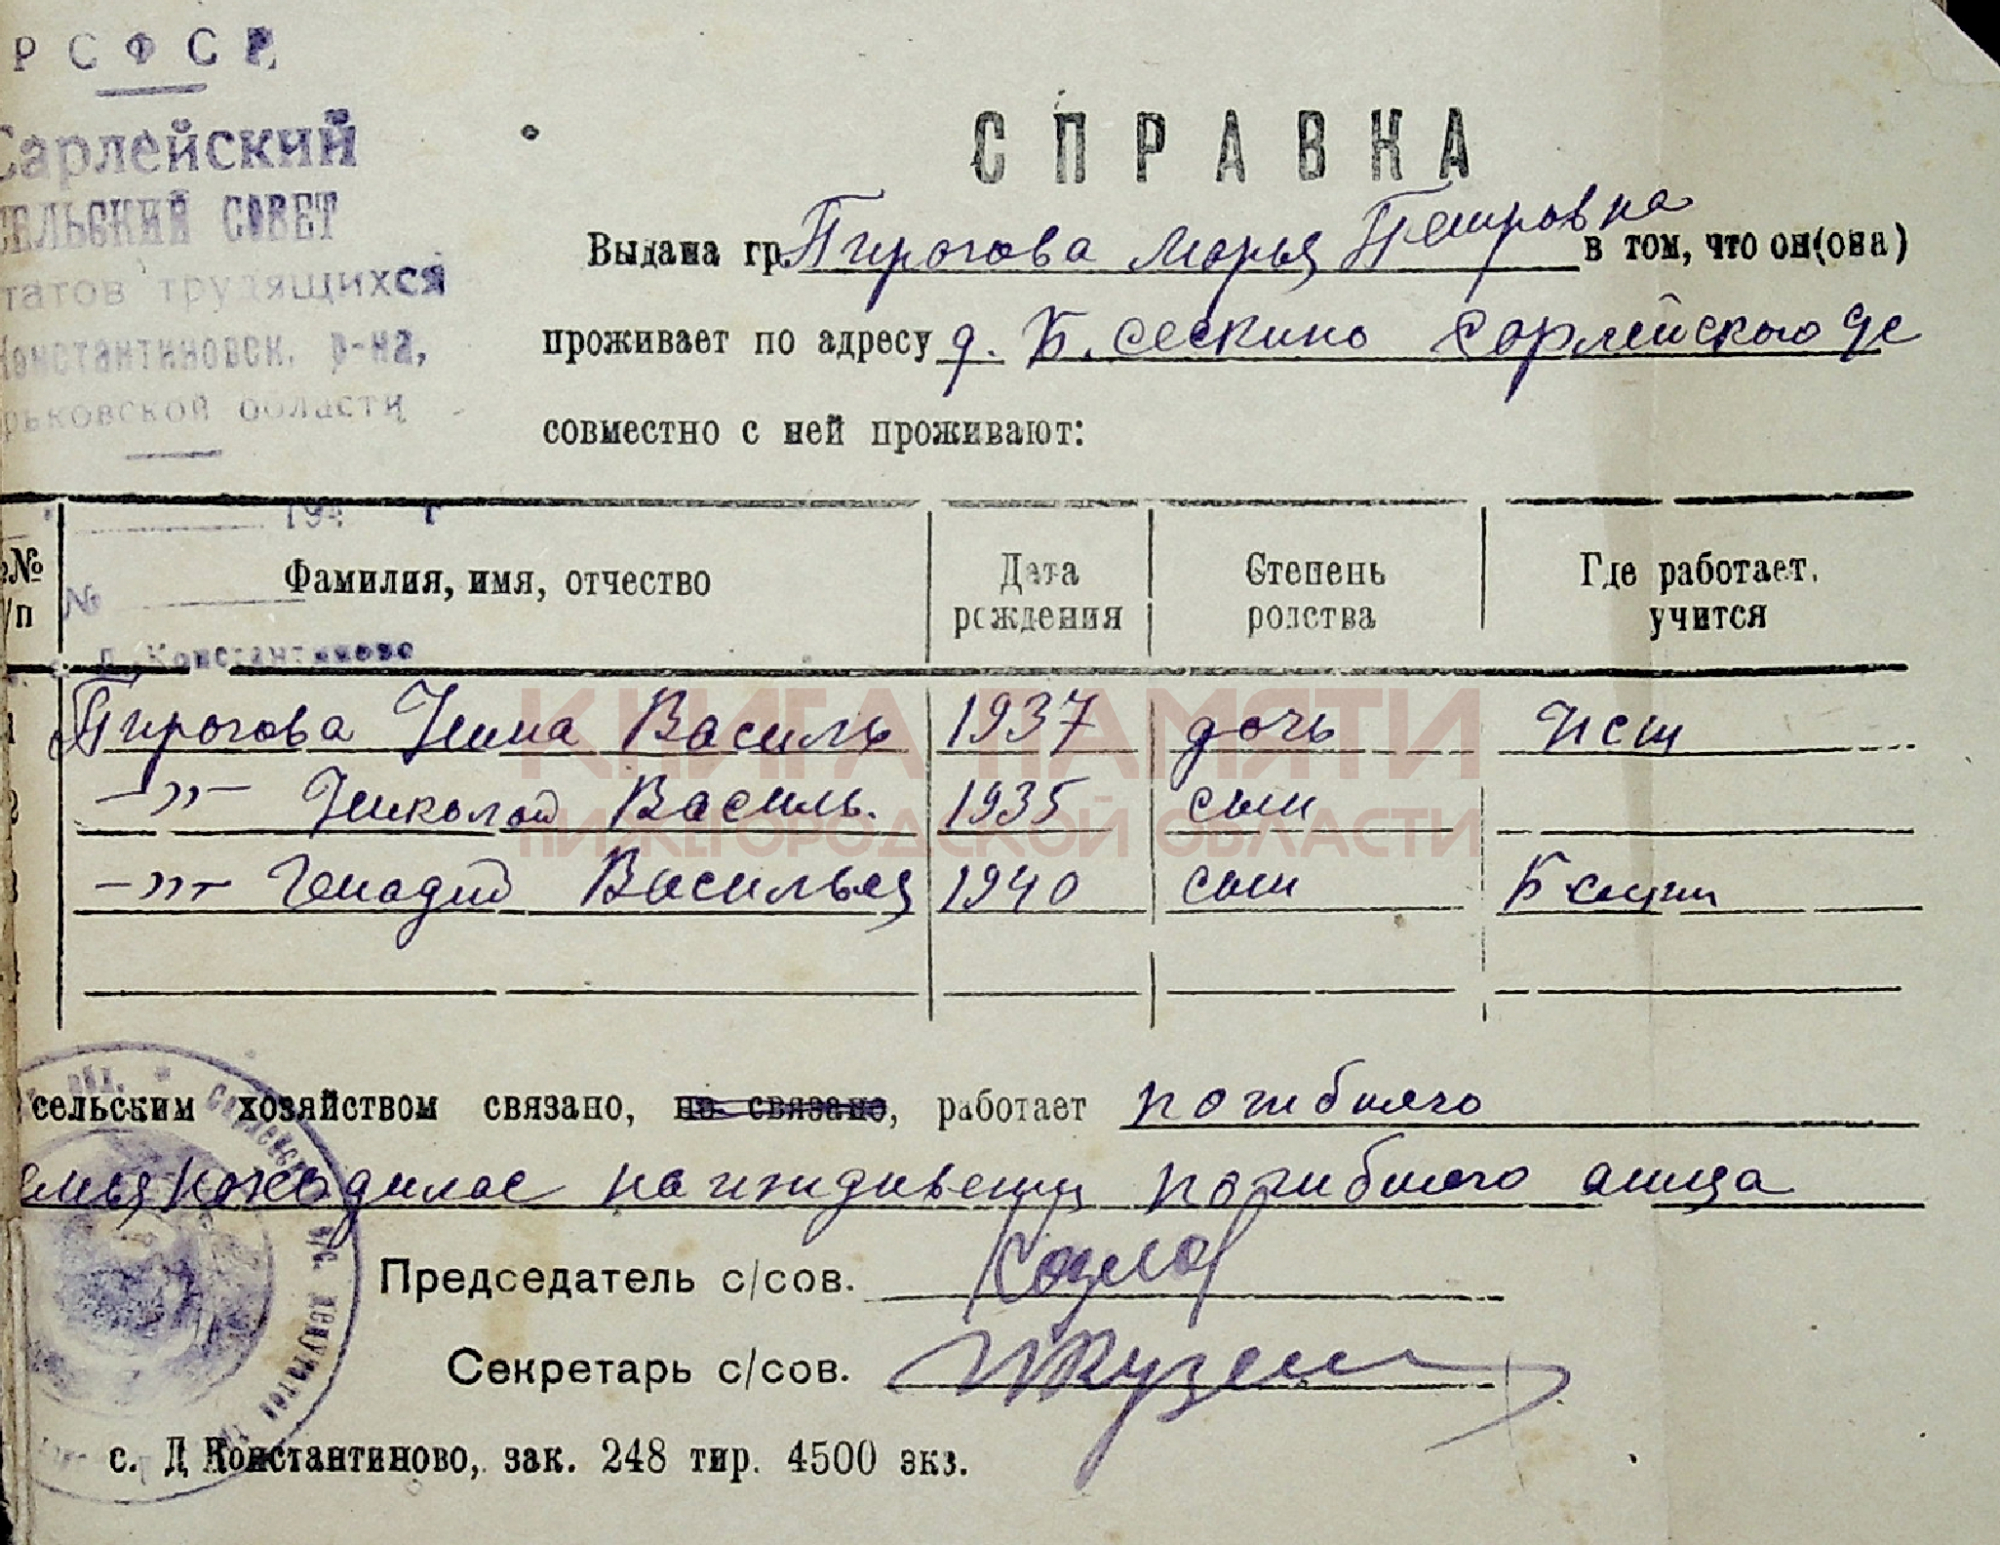 РСФСР
Сарлейский
СЕЛЬСКИЙ СОВЕТ
татов трудящихся
Константиновск. р-на,
рьковской области
СПРАВКА
Выдана гр. Пирогова Марья Петровна в том, что он(она)
проживает по адресу д. Б. Сескино Сарлейского
совместно с ней проживают:
194 г
№
Д. Константиново
№ /п Фамилия, имя, отчество Дата рождения Степень родства Где работает, учится
1 Пирогова Нина Василь 1937 дочь
2 -»- Николай Василь. 1935 сын
3 -»- Генадий Васильев 1940 сын
КНИГА ПАМЯТИ
НИЖЕГОРОДСКОЙ ОБЛАСТИ
сельским хозяйством связано, не связано, работает погибшего
емья находилас на иждивении погибшего
Председатель с/сов.
Секретарь с/сов.
с. Д Константиново, зак. 248 тир. 4500 экз.